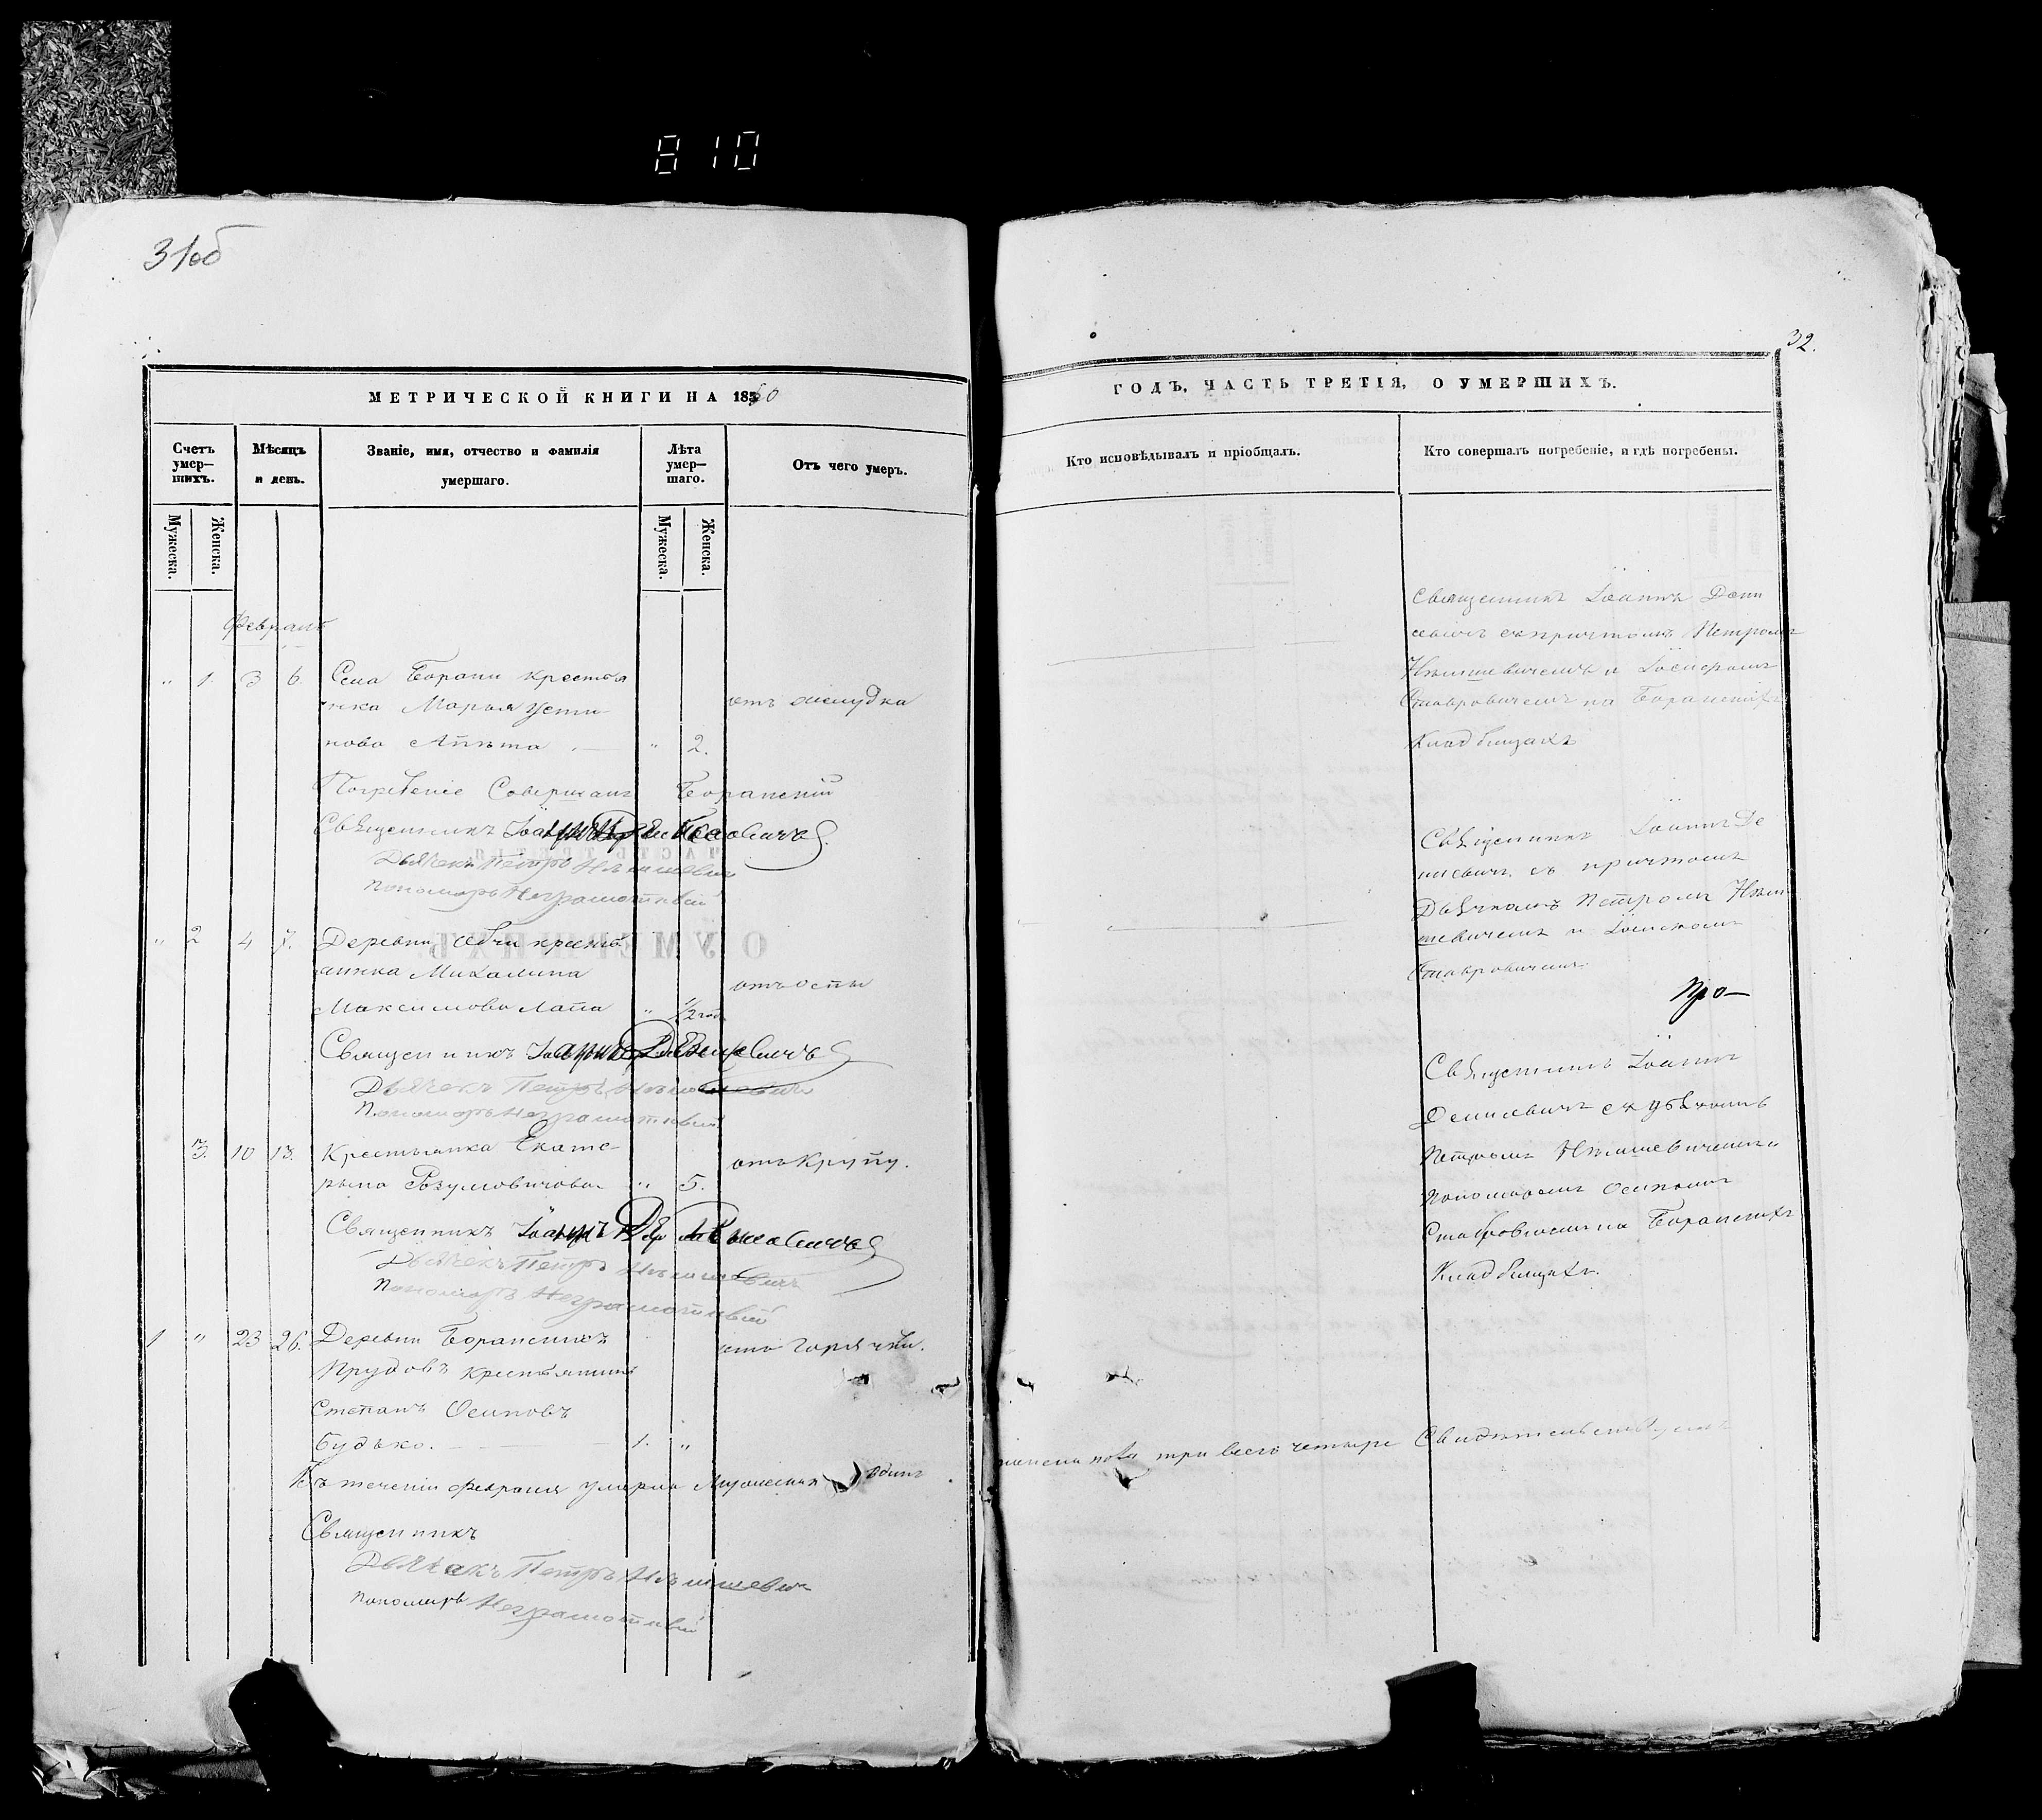 810
31об
32.
МЕТРИЧЕСКОЙ КНИГИ НА 1860
ГОДЪ, ЧАСТЬ ТРЕТІЯ, О УМЕРШИХЪ.
Счетъ умер-
шихъ.
Мѣсяцъ
и день.
Званіе, имя, отчество и фамилія
умершаго.
Лѣта
умер-
шаго.
Отъ чего умеръ.
Кто исповѣдывалъ и пріобщалъ.
Кто совершалъ погребеніе, и гдѣ погребены.
Мужеска.
Женска.
Мужеска.
Женска.
Февраль
" 1. 3 6. Села Борани крестья
нка Марья Усти
нова " 2.
отъ желудка
Священникъ Іоаннъ Дени
севичъ съ причтомъ Петромъ
и Іосифомъ
Ставровичемъ на Боранскихъ
Кладбищахъ
Погребеніе Совершалъ Боранскій
Священникъ Іоаннъ Денисевичъ
Дьячекъ Петръ
Пономарь Неграмотный
" 2 4 7. Деревни крестья
анка Михалина
Максимова Лапа " 1/2 год
отъ оспы
Священникъ Іоаннъ Де
нисевичъ съ причтомъ
Дьячкомъ Петромъ
и
Ставровичемъ
Про-
Священникъ Іоаннъ Денисевичъ
Дьячекъ Петръ
Пономарь Неграмотный
3. 10 13. Крестьянка Екате-
рына Розумовичова " 5.
отъ крупу.
Священникъ Іоаннъ
Денисевичъ съ дьячкомъ
Петромъ
Пономаремъ Осипомъ
на Боранскихъ
Кладбищахъ.
Священникъ Іоаннъ Денисевичъ
Дьячекъ Петръ
Пономарь Неграмотный
1 " 23 26. Деревни Боранскихъ
Прудовъ крестьянинъ
Степанъ Осиповъ
Будько. 1. "
отъ горячки.
Въ теченіи февраля умерло Мужеска одинъ
женска пола три всего четыре Свидѣтельствуемъ
Священникъ
Дьячекъ Петръ
Пономарь Неграмотный